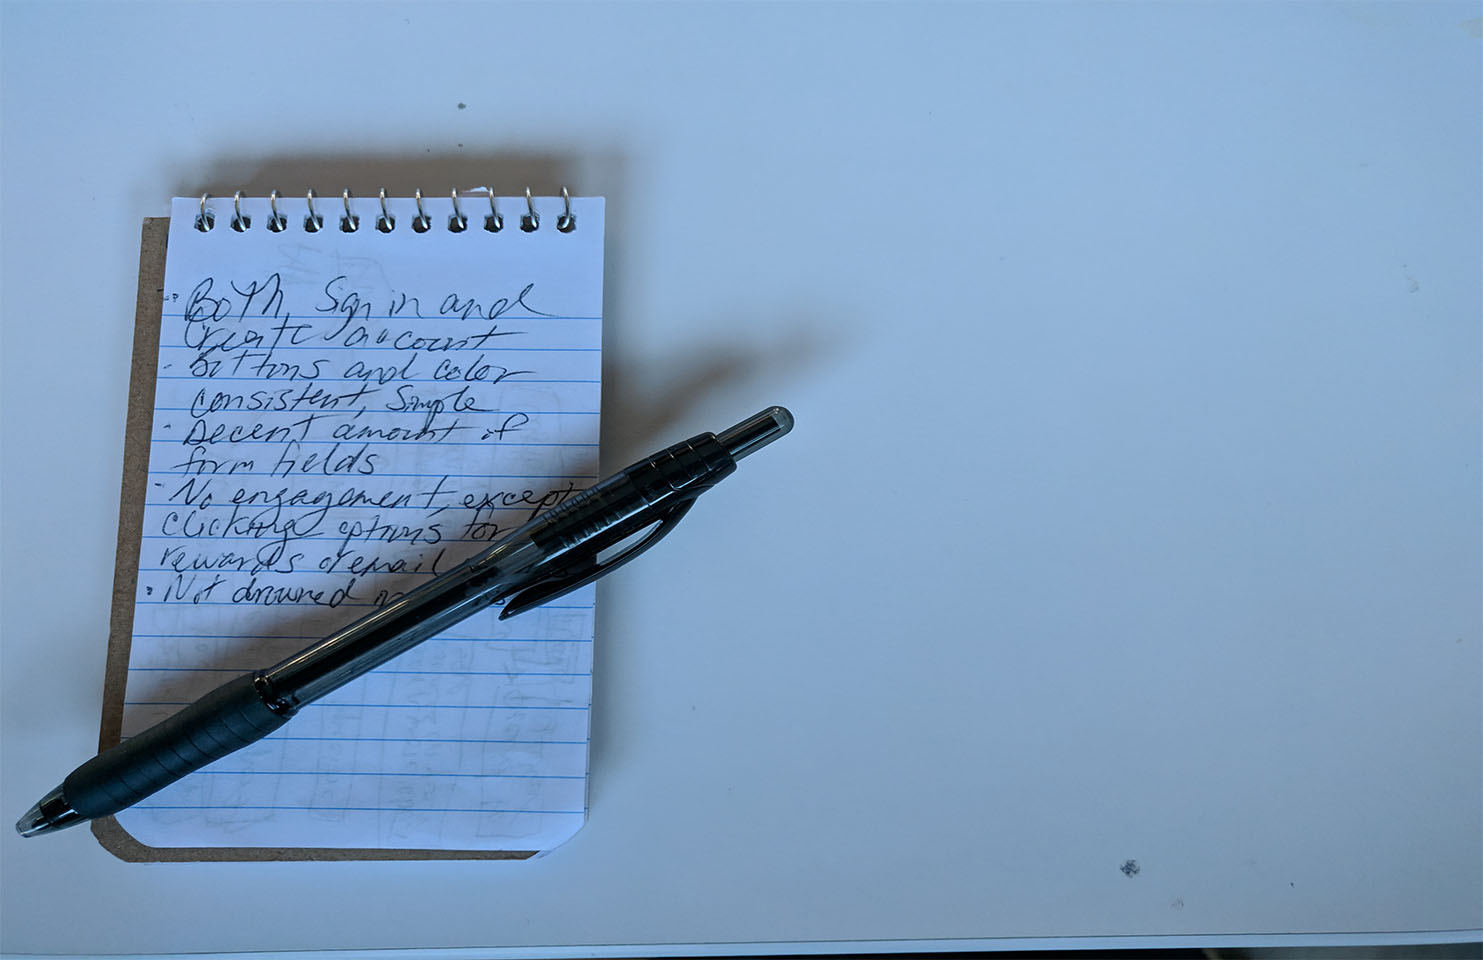 · Both, Sign in and
Create account
- Buttons and color
consistent, Simple
- Decent amount of
form fields
- No engagement, except
clicking options for
rewards or email
· Not drowned